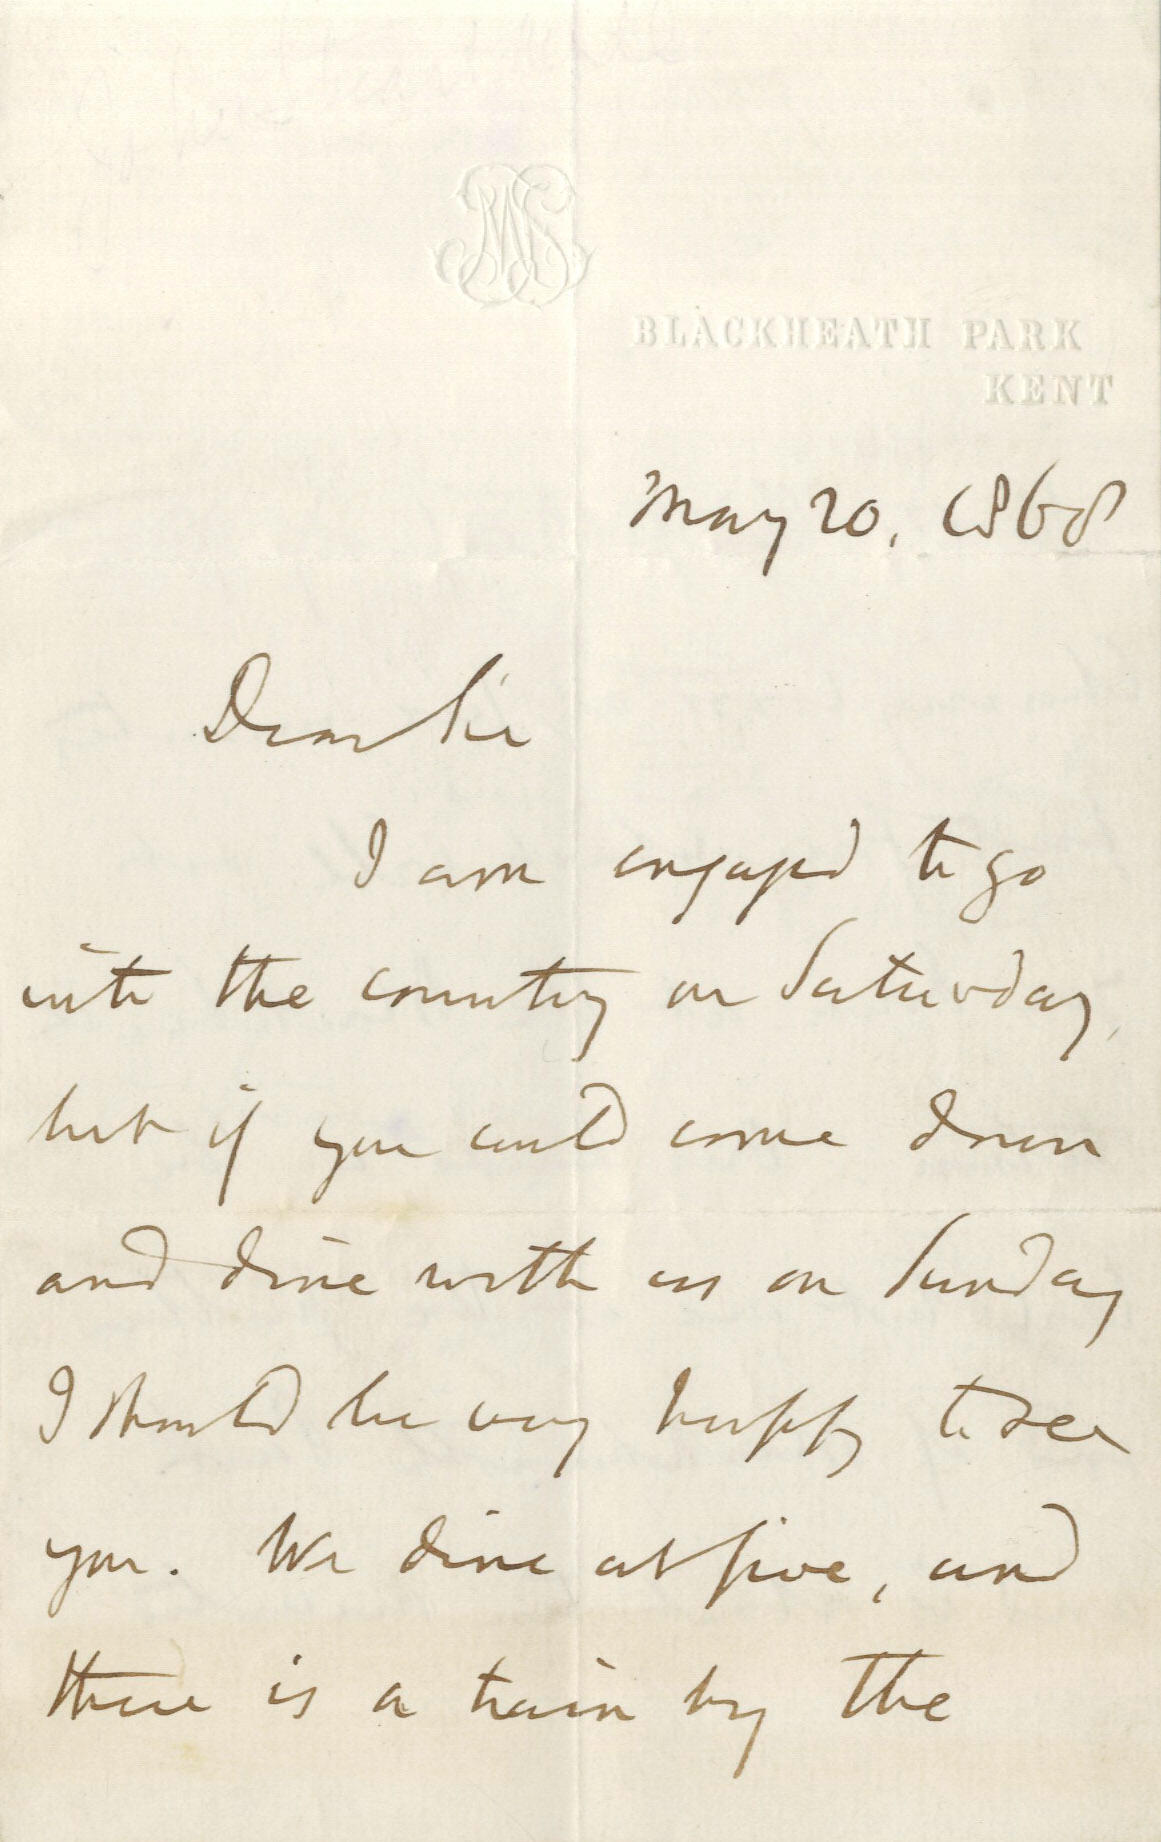 JSM
BLACKHEATH PARK
KENT
May 20, 1868
Dear Sir
I am engaged to go
into the country on Saturday,
but if you could come down
and dine with us on Sunday
I should be very happy to see
you. We dine at five, and
there is a train by the